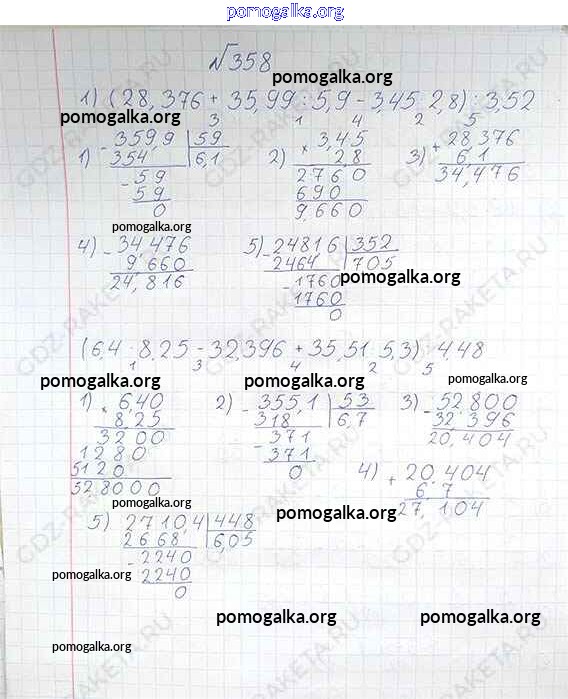 pomogalka.org
№358
pomogalka.org
1) (28,376 + 35,99 : 5,9 - 3,45 · 2,8) : 3,52
pomogalka.org 3 1 4 2 5
1) - 359,9 | 59 2) × 3,45 3) + 28,376
354 | 6,1 2,8 6,1
- 59 2760 34,476
59 690
0 9,660
pomogalka.org
4) - 34,476 5) - 24816 | 352
9,660 2464 | 705
24,816 - 1760 pomogalka.org
1760
0
(6,4 · 8,25 - 32,396 + 35,51 : 5,3) : 4,48
1 3 4 2 5
pomogalka.org pomogalka.org pomogalka.org
1) × 6,40 2) - 355,1 | 53 3) - 52,800
8,25 318 | 6,7 32,396
3200 - 371 20,404
1280 371
5120 0
52,8000
4) + 20,404
6,7
27,104
pomogalka.org
5) 2710,4 | 448
2688 | 6,05
- 2240
pomogalka.org 2240
0
pomogalka.org pomogalka.org
pomogalka.org
GDZ-RAKETA.RU